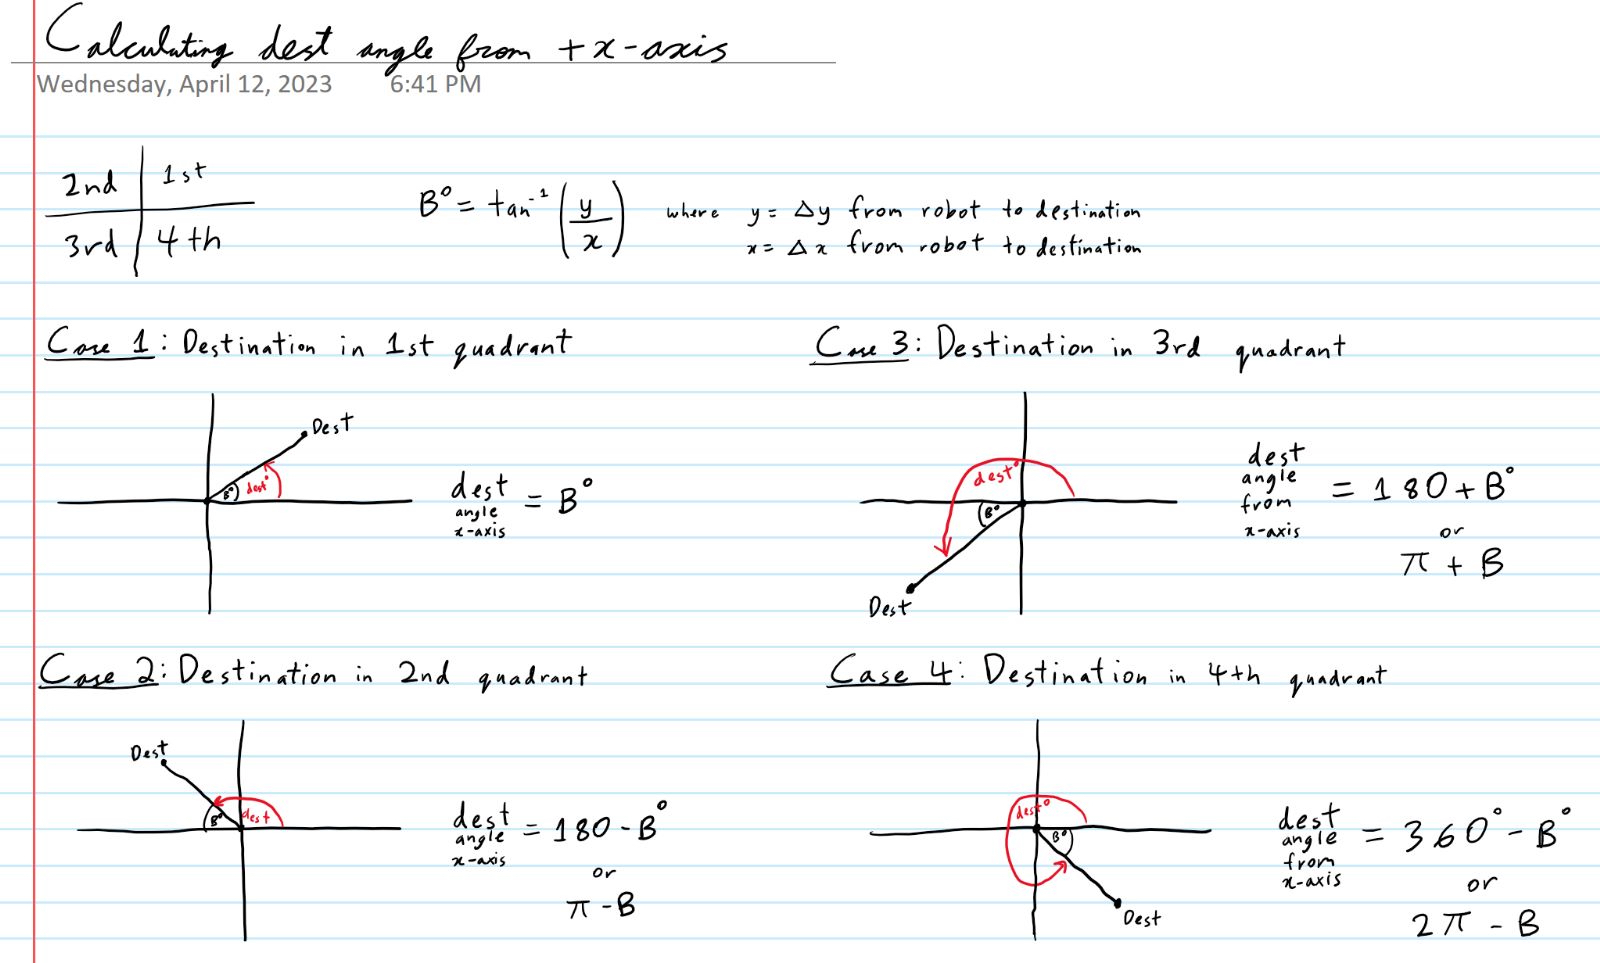 Calculating dest angle from +x-axis
Wednesday, April 12, 2023 6:41 PM
2nd 1st
3rd 4th
B° = tan⁻¹(y/x) where y = Δy from robot to destination
x = Δx from robot to destination
Case 1: Destination in 1st quadrant
Dest
B° dest°
dest angle x-axis = B°
Case 2: Destination in 2nd quadrant
Dest
B° dest
dest angle x-axis = 180 - B°
or
π - B
Case 3: Destination in 3rd quadrant
dest°
B°
Dest
dest angle from x-axis = 180 + B°
or
π + B
Case 4: Destination in 4th quadrant
dest°
B°
Dest
dest angle from x-axis = 360° - B°
or
2π - B